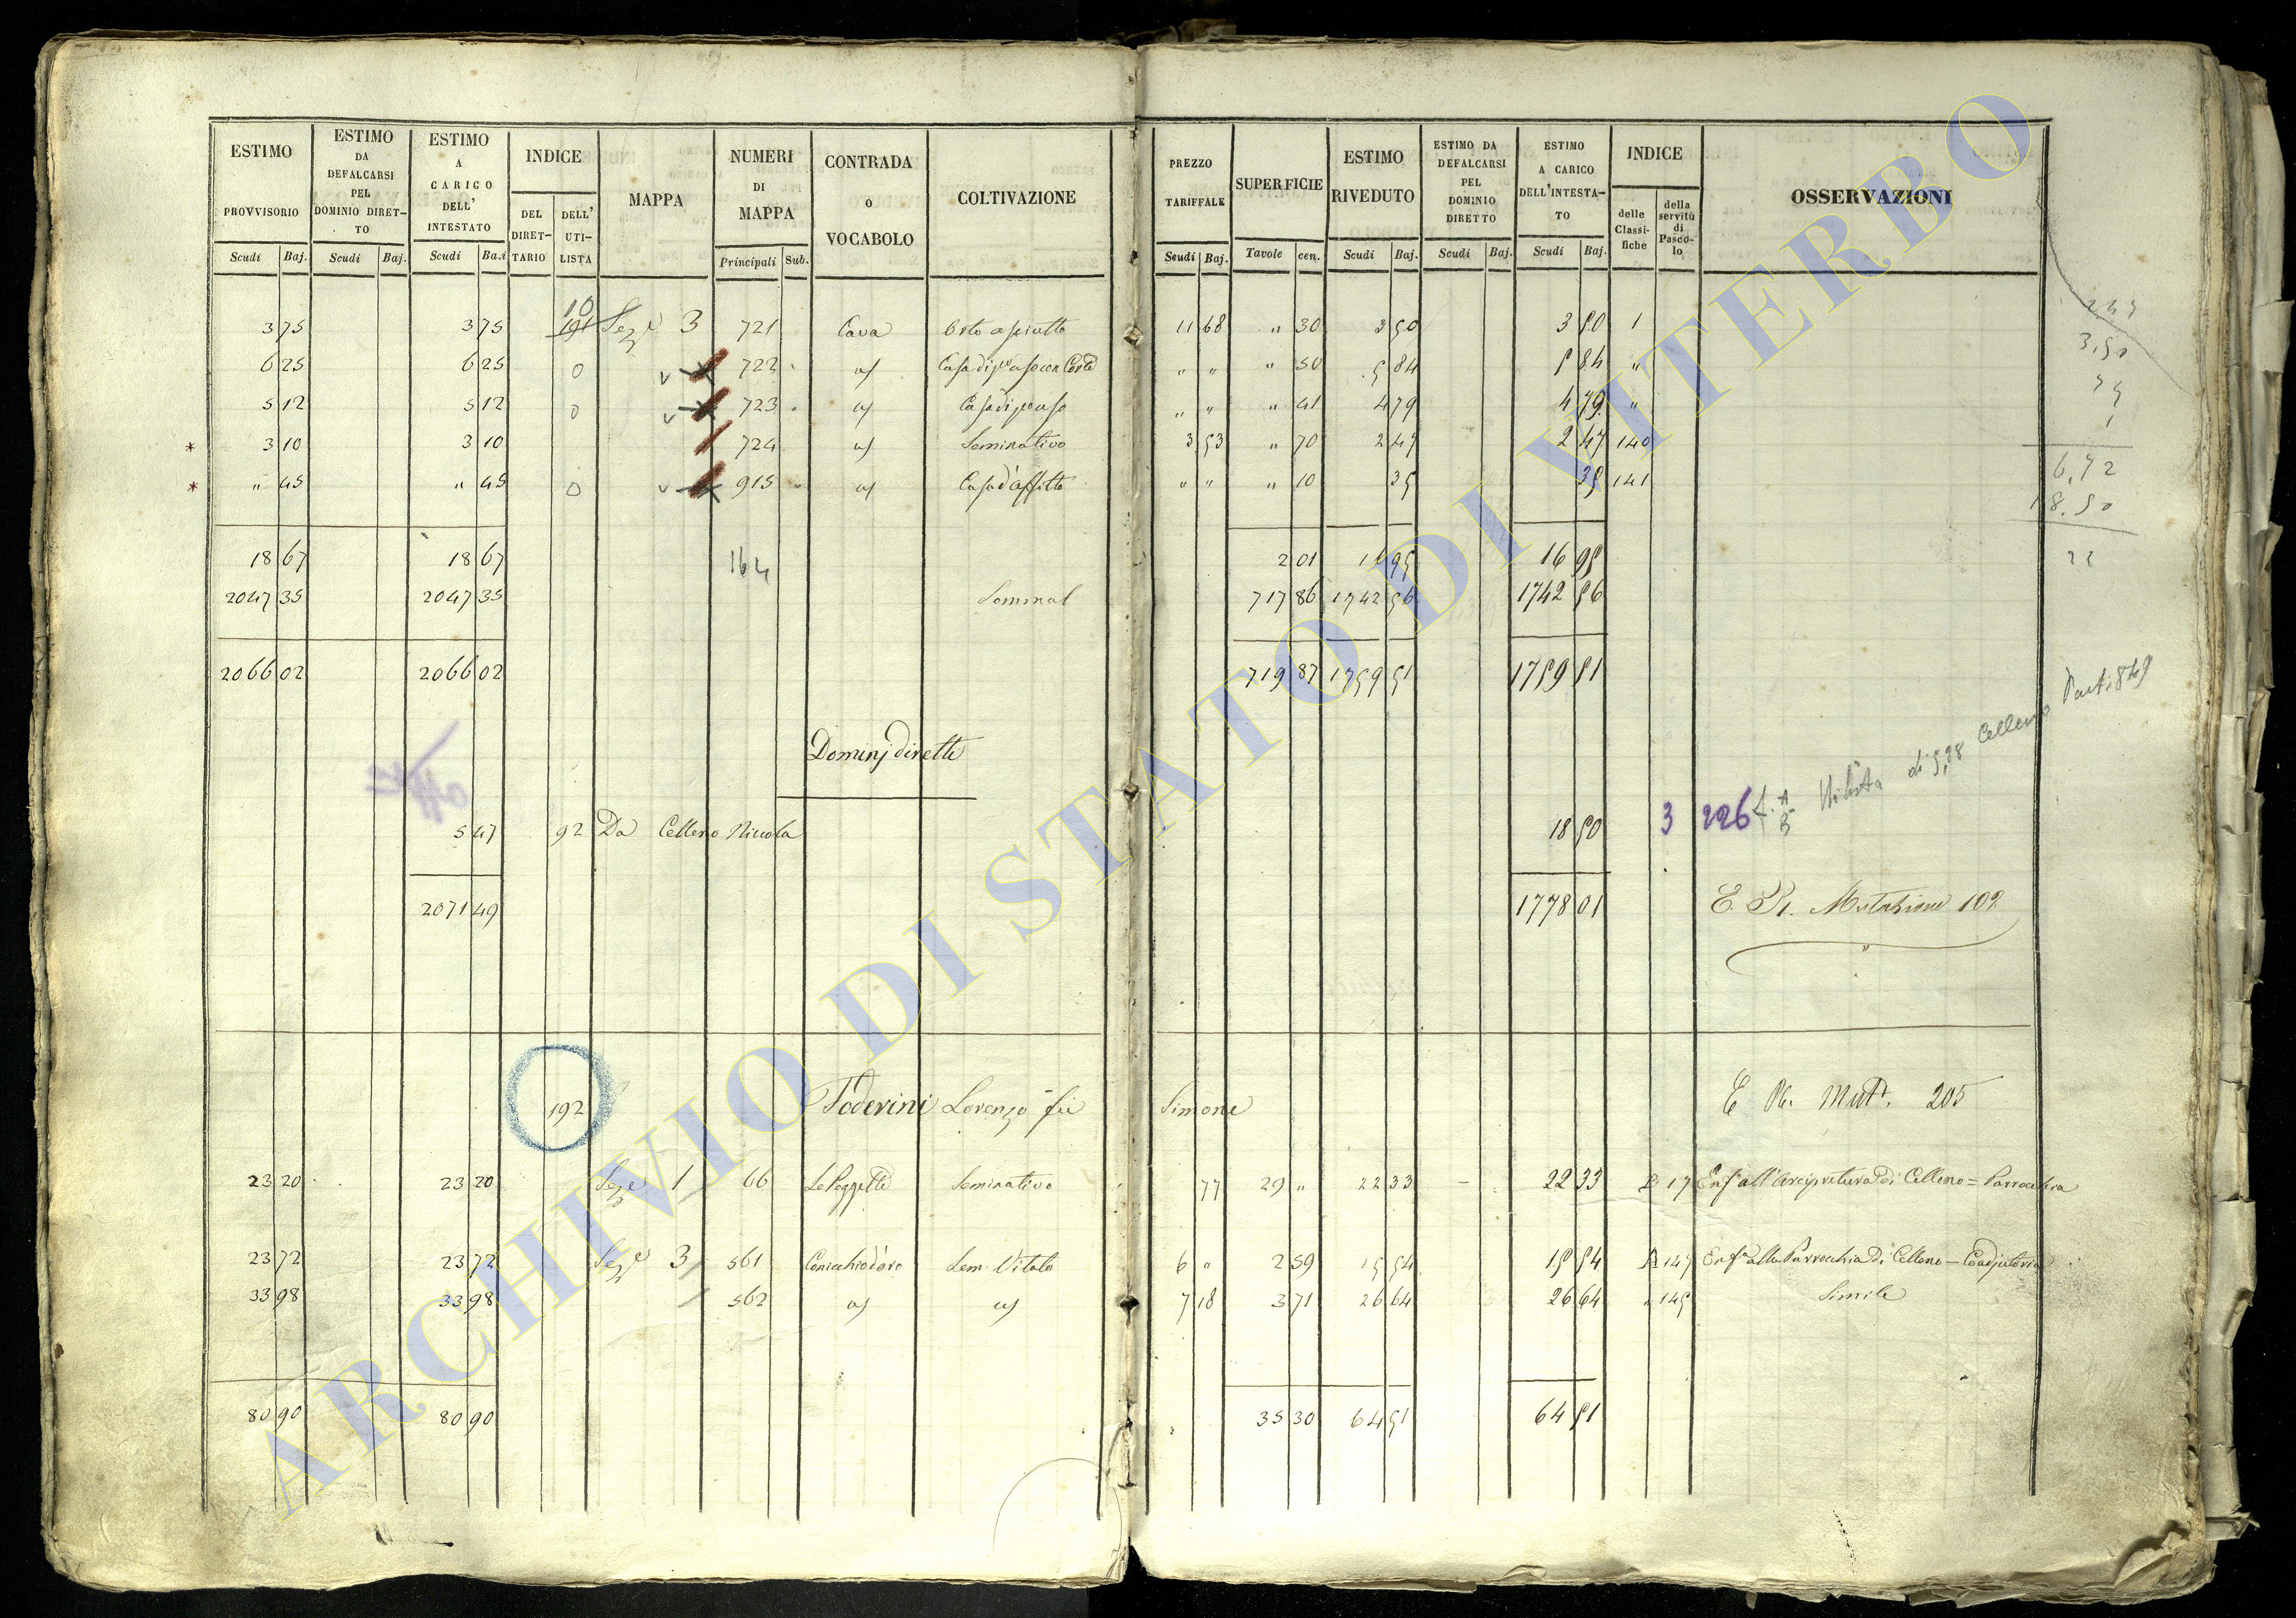 ESTIMO PROVVISORIO Scudi Baj.
ESTIMO DA DEFALCARSI PEL DOMINIO DIRETTO Scudi Baj.
ESTIMO A CARICO DELL' INTESTATO Scudi Ba.i
INDICE DEL DIRETTARIO DELL' UTILISTA
MAPPA
NUMERI DI MAPPA Principali Sub.
CONTRADA O VOCABOLO
COLTIVAZIONE
PREZZO TARIFFALE Scudi Baj.
SUPERFICIE Tavole cen.
ESTIMO RIVEDUTO Scudi Baj.
ESTIMO DA DEFALCARSI PEL DOMINIO DIRETTO Scudi Baj.
ESTIMO A CARICO DELL'INTESTATO Scudi Baj.
INDICE delle Classifiche della servitù di Pascolo
OSSERVAZIONI
10
3 75 3 75 191 Sez.e 3 721 Cava Orto asciutto 11 68 " 30 3 50 3 50 1
6 25 6 25 0 722 Casa di p. uso con Corte " " " 50 5 84 5 84 "
5 12 5 12 0 723 Casa di p. uso " " " 41 4 79 4 79 "
3 10 3 10 724 Seminativo 3 53 " 70 2 47 2 47 140
" 45 " 45 0 915 Casa d'affitto " " " 10 35 35 141
18 67 18 67 164 2 01 16 95 16 95
2047 35 2047 35 717 86 1742 56 1742 56
2066 02 2066 02 719 87 1759 51 1759 51
Dominj diretti
5 47 92 Da Celleno Niccola 18 50 3 226 Utilista di 5,28 Celleno Part. 849
2071 49 1778 01 Mutazione 102
192 Foderini Lorenzo fù Simone Mut. 205
23 20 23 20 Sez.e 1 66 Le Poggette Seminativo 77 29 " 22 33 22 33 17 Enf. all'Arcipretura di Celleno = Parrocchia
23 72 23 72 Sez.e 3 561 Conicchio d'oro Sem. Vitato 6 " 2 59 15 54 15 54 A 147 Enf. alla Parrocchia di Celleno - Coadjutoria
33 98 33 98 562 7 18 3 71 26 64 26 64 " 145 Simile
80 90 80 90 35 30 64 51 64 51
2.47
3,50
6,72
18.50
22
ARCHIVIO DI STATO DI VITERBO